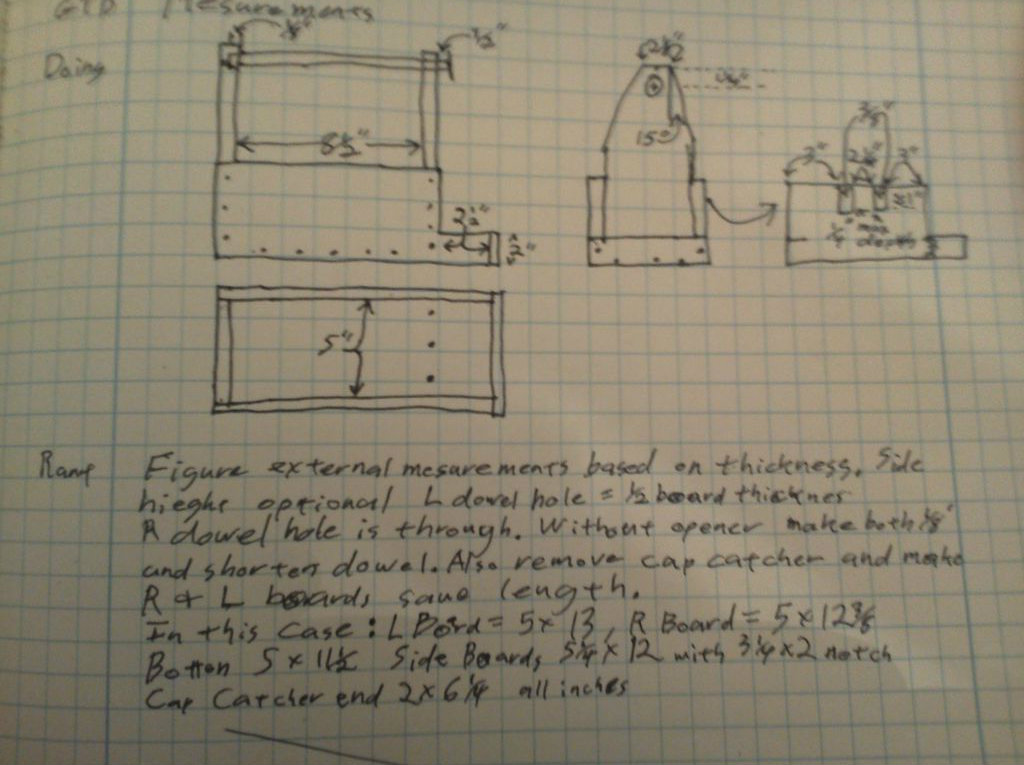 Mesurements
Doing
1/2"
2 1/2
8 1/2"
15°
3"
3"
2 1/2"
2"
max
depth
5"
Figure external mesurements based on thickness. Side
hieght optional L dowel hole = 1/2 board thicknes
R dowel hole is through. Without opener make both 1/8"
and shorten dowel. Also remove cap catcher and make
R & L boards same length.
In this case: L Bord = 5 x 13, R Board = 5 x 12 3/8
Botton 5 x 11 1/2 Side Boards 5 1/4 x 12 with 3 1/4 x 2 notch
Cap Catcher end 2 x 6 1/4 all inches